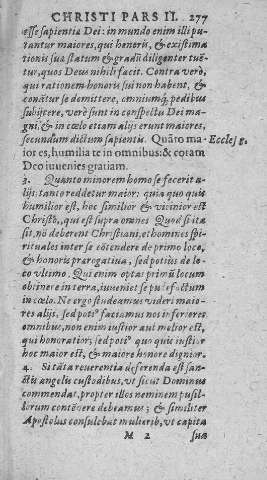 CHRISTI PARS II. 277
esse sapientia Dei: in mundo enim illi pu-
tantur maiores, qui honeris, & existima
tionis sua statum & gradũ diligenter tuẽ-
tur, quos Deus nihili facit. Contra verò,
qui rationem honoris sui non habent, &
conãtur se demittere, omniumq́, pedibus
subijcere, verè sunt in conspectu Dei ma-
gni, & in cœlo etiam alijs erunt maiores,
secundum dictum sapientis. Quãto ma-
Eccles 3.
ior es, humilia te in omnibus: & coram
Deo inuenies gratiam.
3. Quanto minorem homo se fecerit a-
lijs: tanto reddetur maior: quia quo quis
humilior est, hoc similior & vicinior est
Christo, qui est supra omnes. Quod si ita
sit, nõ deberent Christiani, et homines spi-
rituales inter se cõtendere de primo loco,
& honoris prærogatiua, sed potiùs de lo-
co vltimo. Qui enim optas primũ locum
obtinere in terra, inuenies te
in cœlo. Ne ergo studeamus videri maio-
res alijs, sed potiꝰ faciamus nos inferiores
omnibus, non enim iustior aut melior est,
qui honoratior; sed potiꝰ quo quis iustior
hoc maior est, & maiore honore dignior.
4. Si tãta reuerentia deferenda est san-
ctis angelis custodibus, vt sicut Dominus
commendat, propter illos neminem pusil-
lorum contẽnere debeamus; & similiter
Apostolus consulebat mulierib, vt capita
M 2 sua